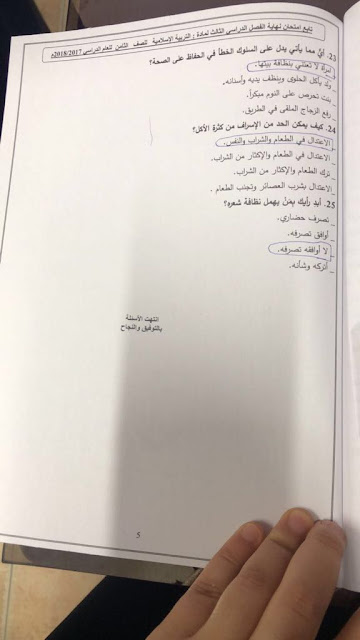 تابع امتحان نهاية الفصل الدراسي الثالث لمادة : التربية الإسلامية للصف الثامن للعام الدراسي 2018/2017م
23. أيٌّ مما يأتي يدل على السلوك الخطأ في الحفاظ على الصحة؟
_ امرأة لا تعتني بنظافة بيتها.
_ رجل يأكل الحلوى وينظف يديه وأسنانه.
_ بنت تحرص على النوم مبكراً.
_ رفع الزجاج الملقى في الطريق.
24. كيف يمكن الحد من الإسراف من كثرة الأكل؟
_ الاعتدال في الطعام والشراب والنفس.
_ الاعتدال في الطعام والإكثار من الشراب.
_ ترك الطعام والإكثار من الشراب.
_ الاعتدال بشرب العصائر وتجنب الطعام .
25. أبدِ رأيك بمَنْ يهمل نظافة شعره؟
_ تصرف حضاري.
_ أوافق تصرفه.
_ لا أوافقه تصرفه.
_ أتركه وشأنه.
انتهت الأسئلة
بالتوفيق والنجاح
5